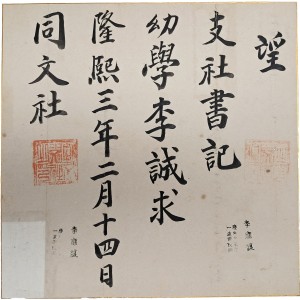 望
支社書記
幼學李誠求
隆熙三年二月十四日
同文社